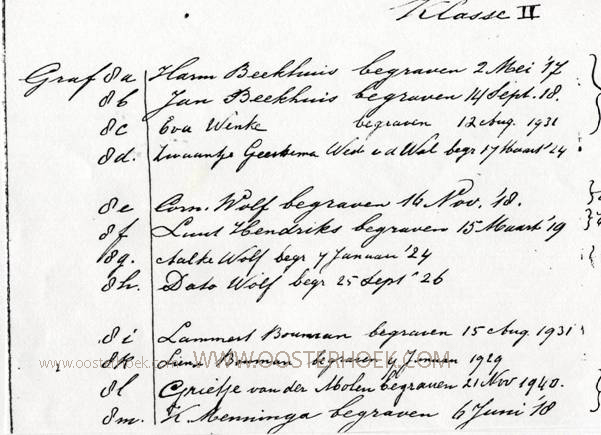 Klasse II
Graf 8a Harm Beekhuis begraven 2 Mei '17
8b Jan Beekhuis begraven 14 Sept. 18.
8c Eva Winke begraven 12 Aug. 1931
8d. Zwaantje Geertsema Wed v d Wal begr 17 Maart '24
8e Corn. Wolf begraven 16 Nov. '18.
8f Luut Hendriks begraven 15 Maart '19
8g. Aalke Wolf begr 7 Januari '24
8h. Dato Wolf begr 25 Sept '26
8i Lammert Bouman begraven 15 Aug. 1931
8k Bouman begraven 1929
www.oosterhoek.com WWW.OOSTERHOEK.COM
8l Grietje van der Molen begraven 21 Nov 1940.
8m. K. Menninga begraven 6 Juni '18